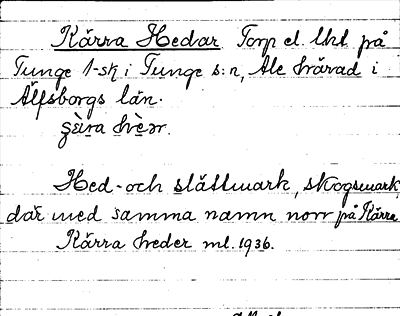 Kärra Hedar Torp el. lht på
Tunge 1-sk i Tunge s:n, Ale härad i
Älfsborgs län.
Hed- och slättmark, skogsmark,
där med samma namn norr på Kärra
Kärra heder ml. 1936.